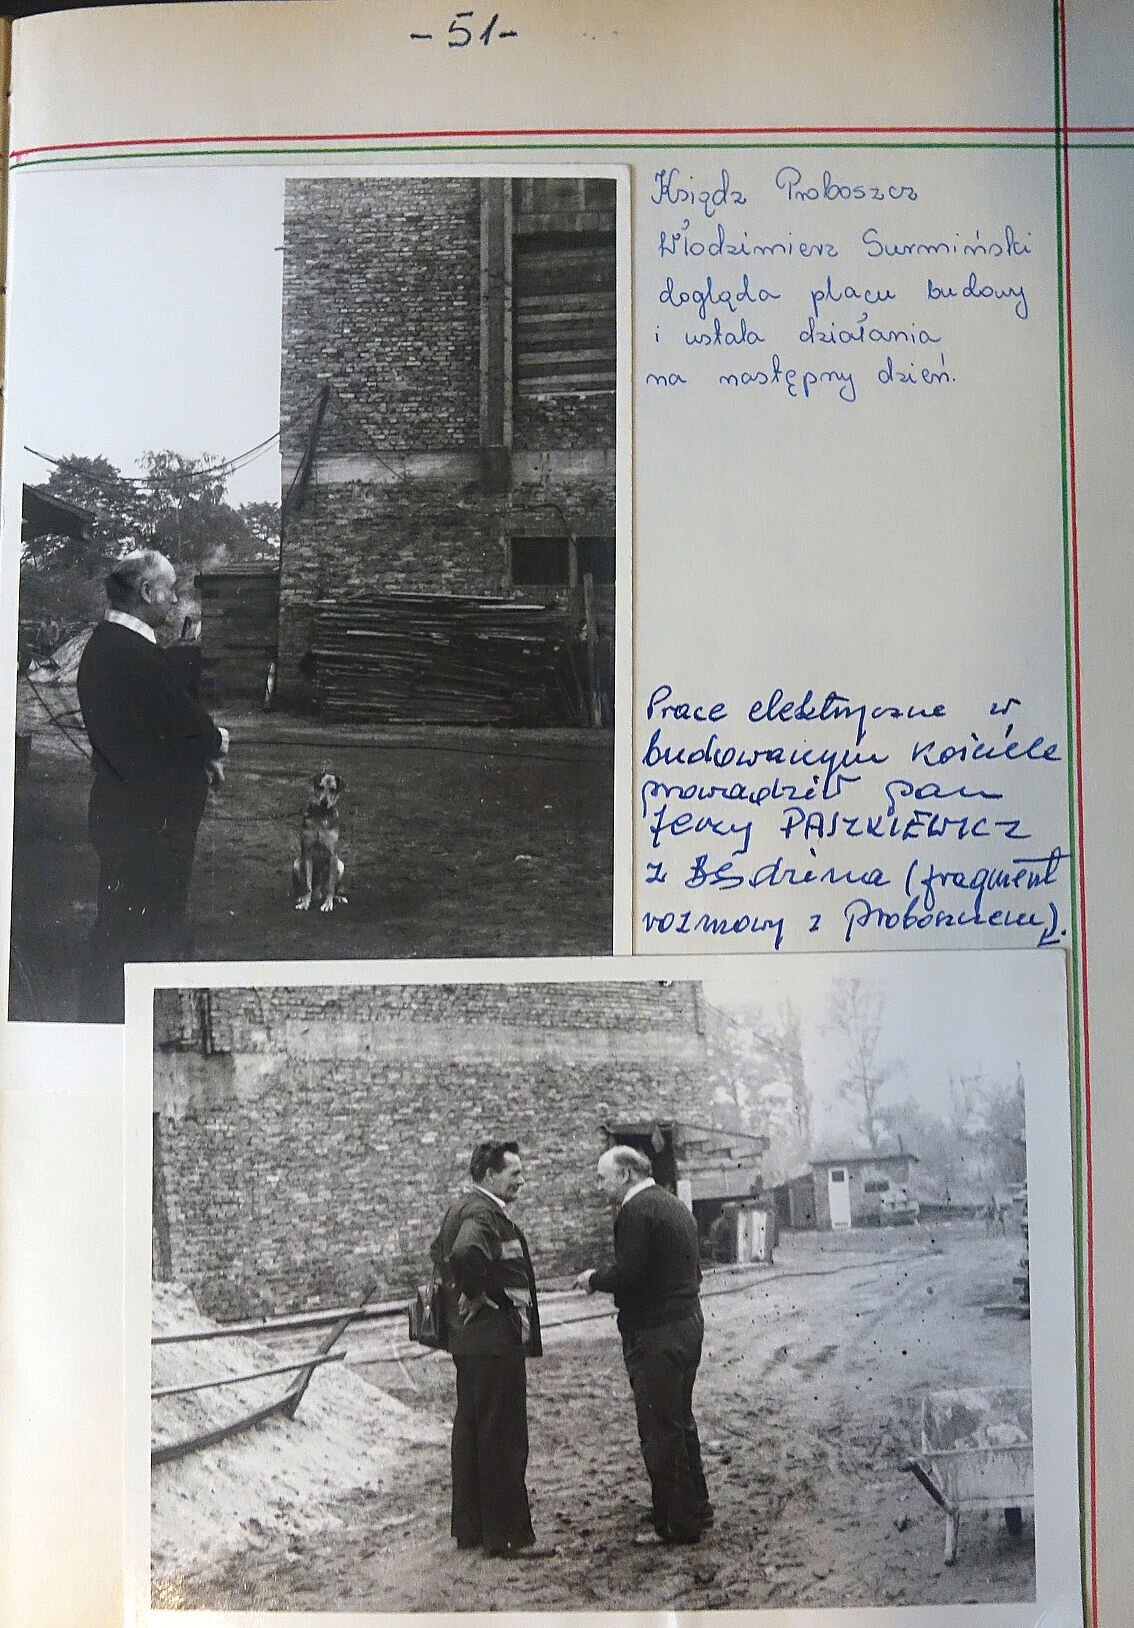 -51-
Ksiądz Proboszcz
Włodzimierz Surmiński
dogląda placu budowy
i ustala działania
na następny dzień.
Prace elektryczne w
budowanym Kościele
prowadził pan
Jerzy PASZKIEWICZ
z Będzina (fragment
rozmowy z proboszczem).